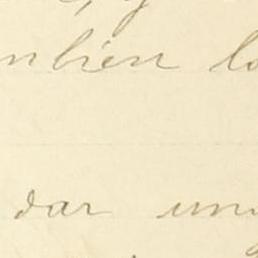 mbien lo
dar un